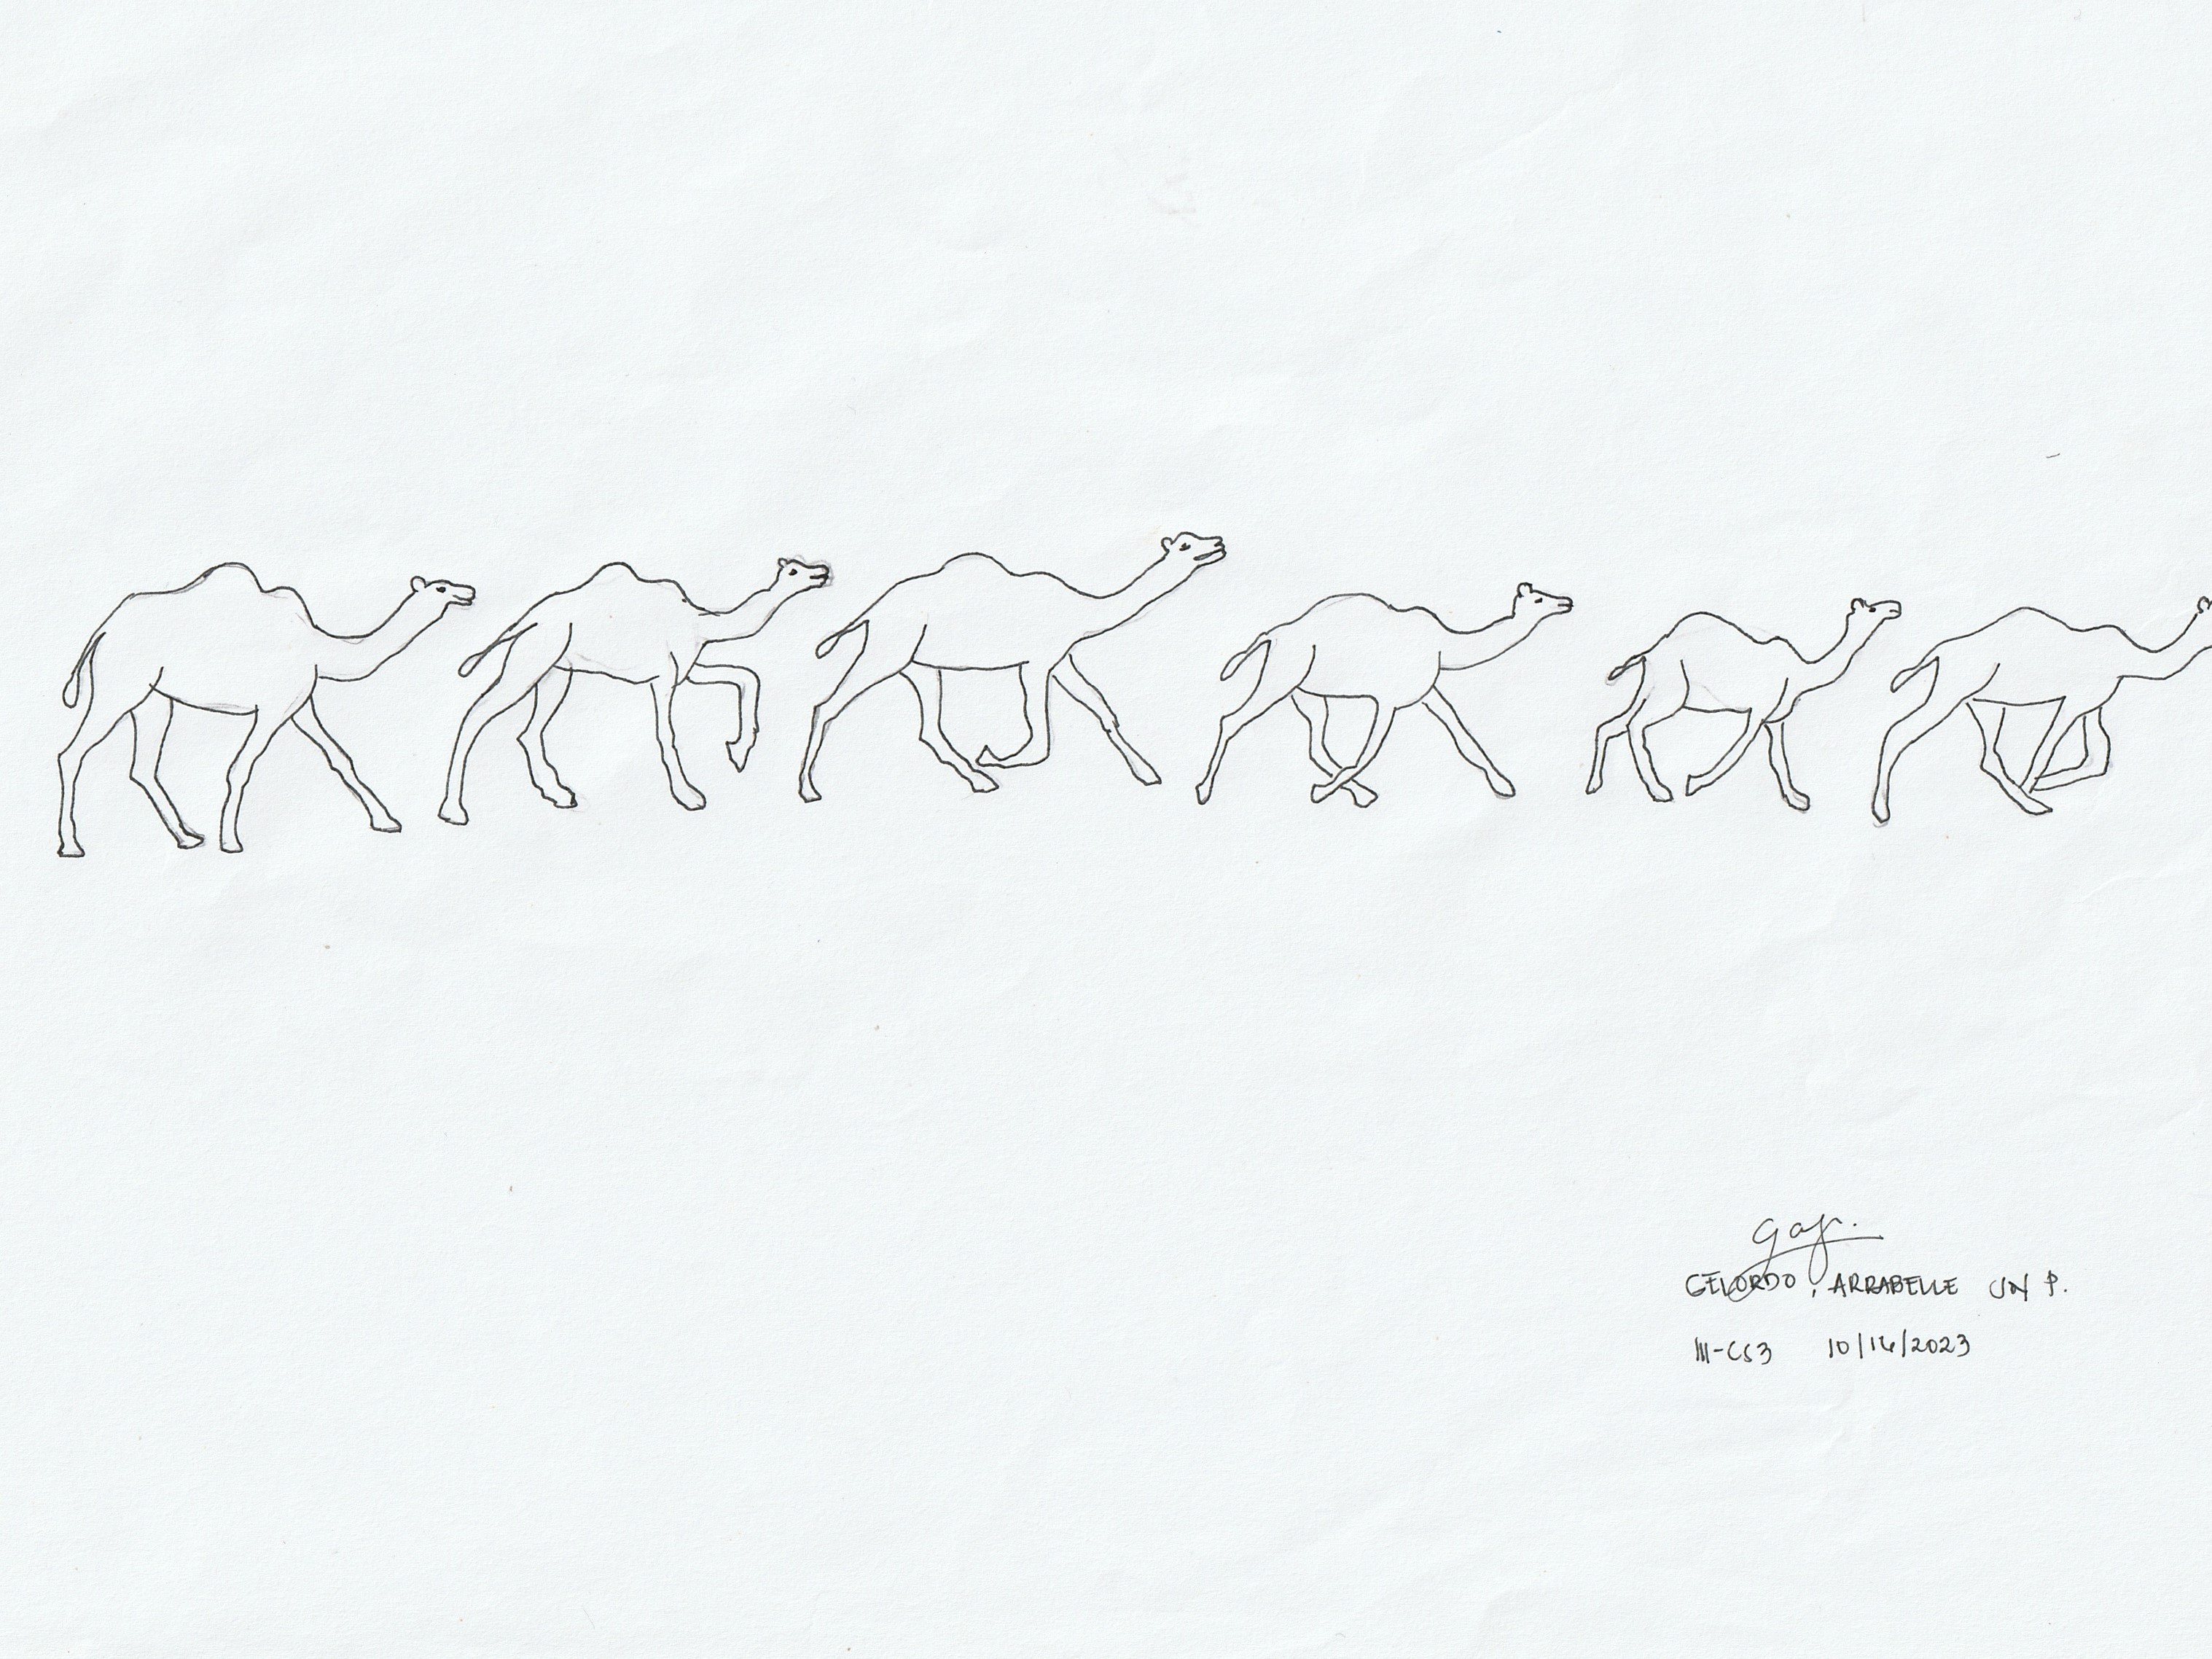 gap.
GELORDO, ARRABELLE JOY P.
III-CS3 10/16/2023